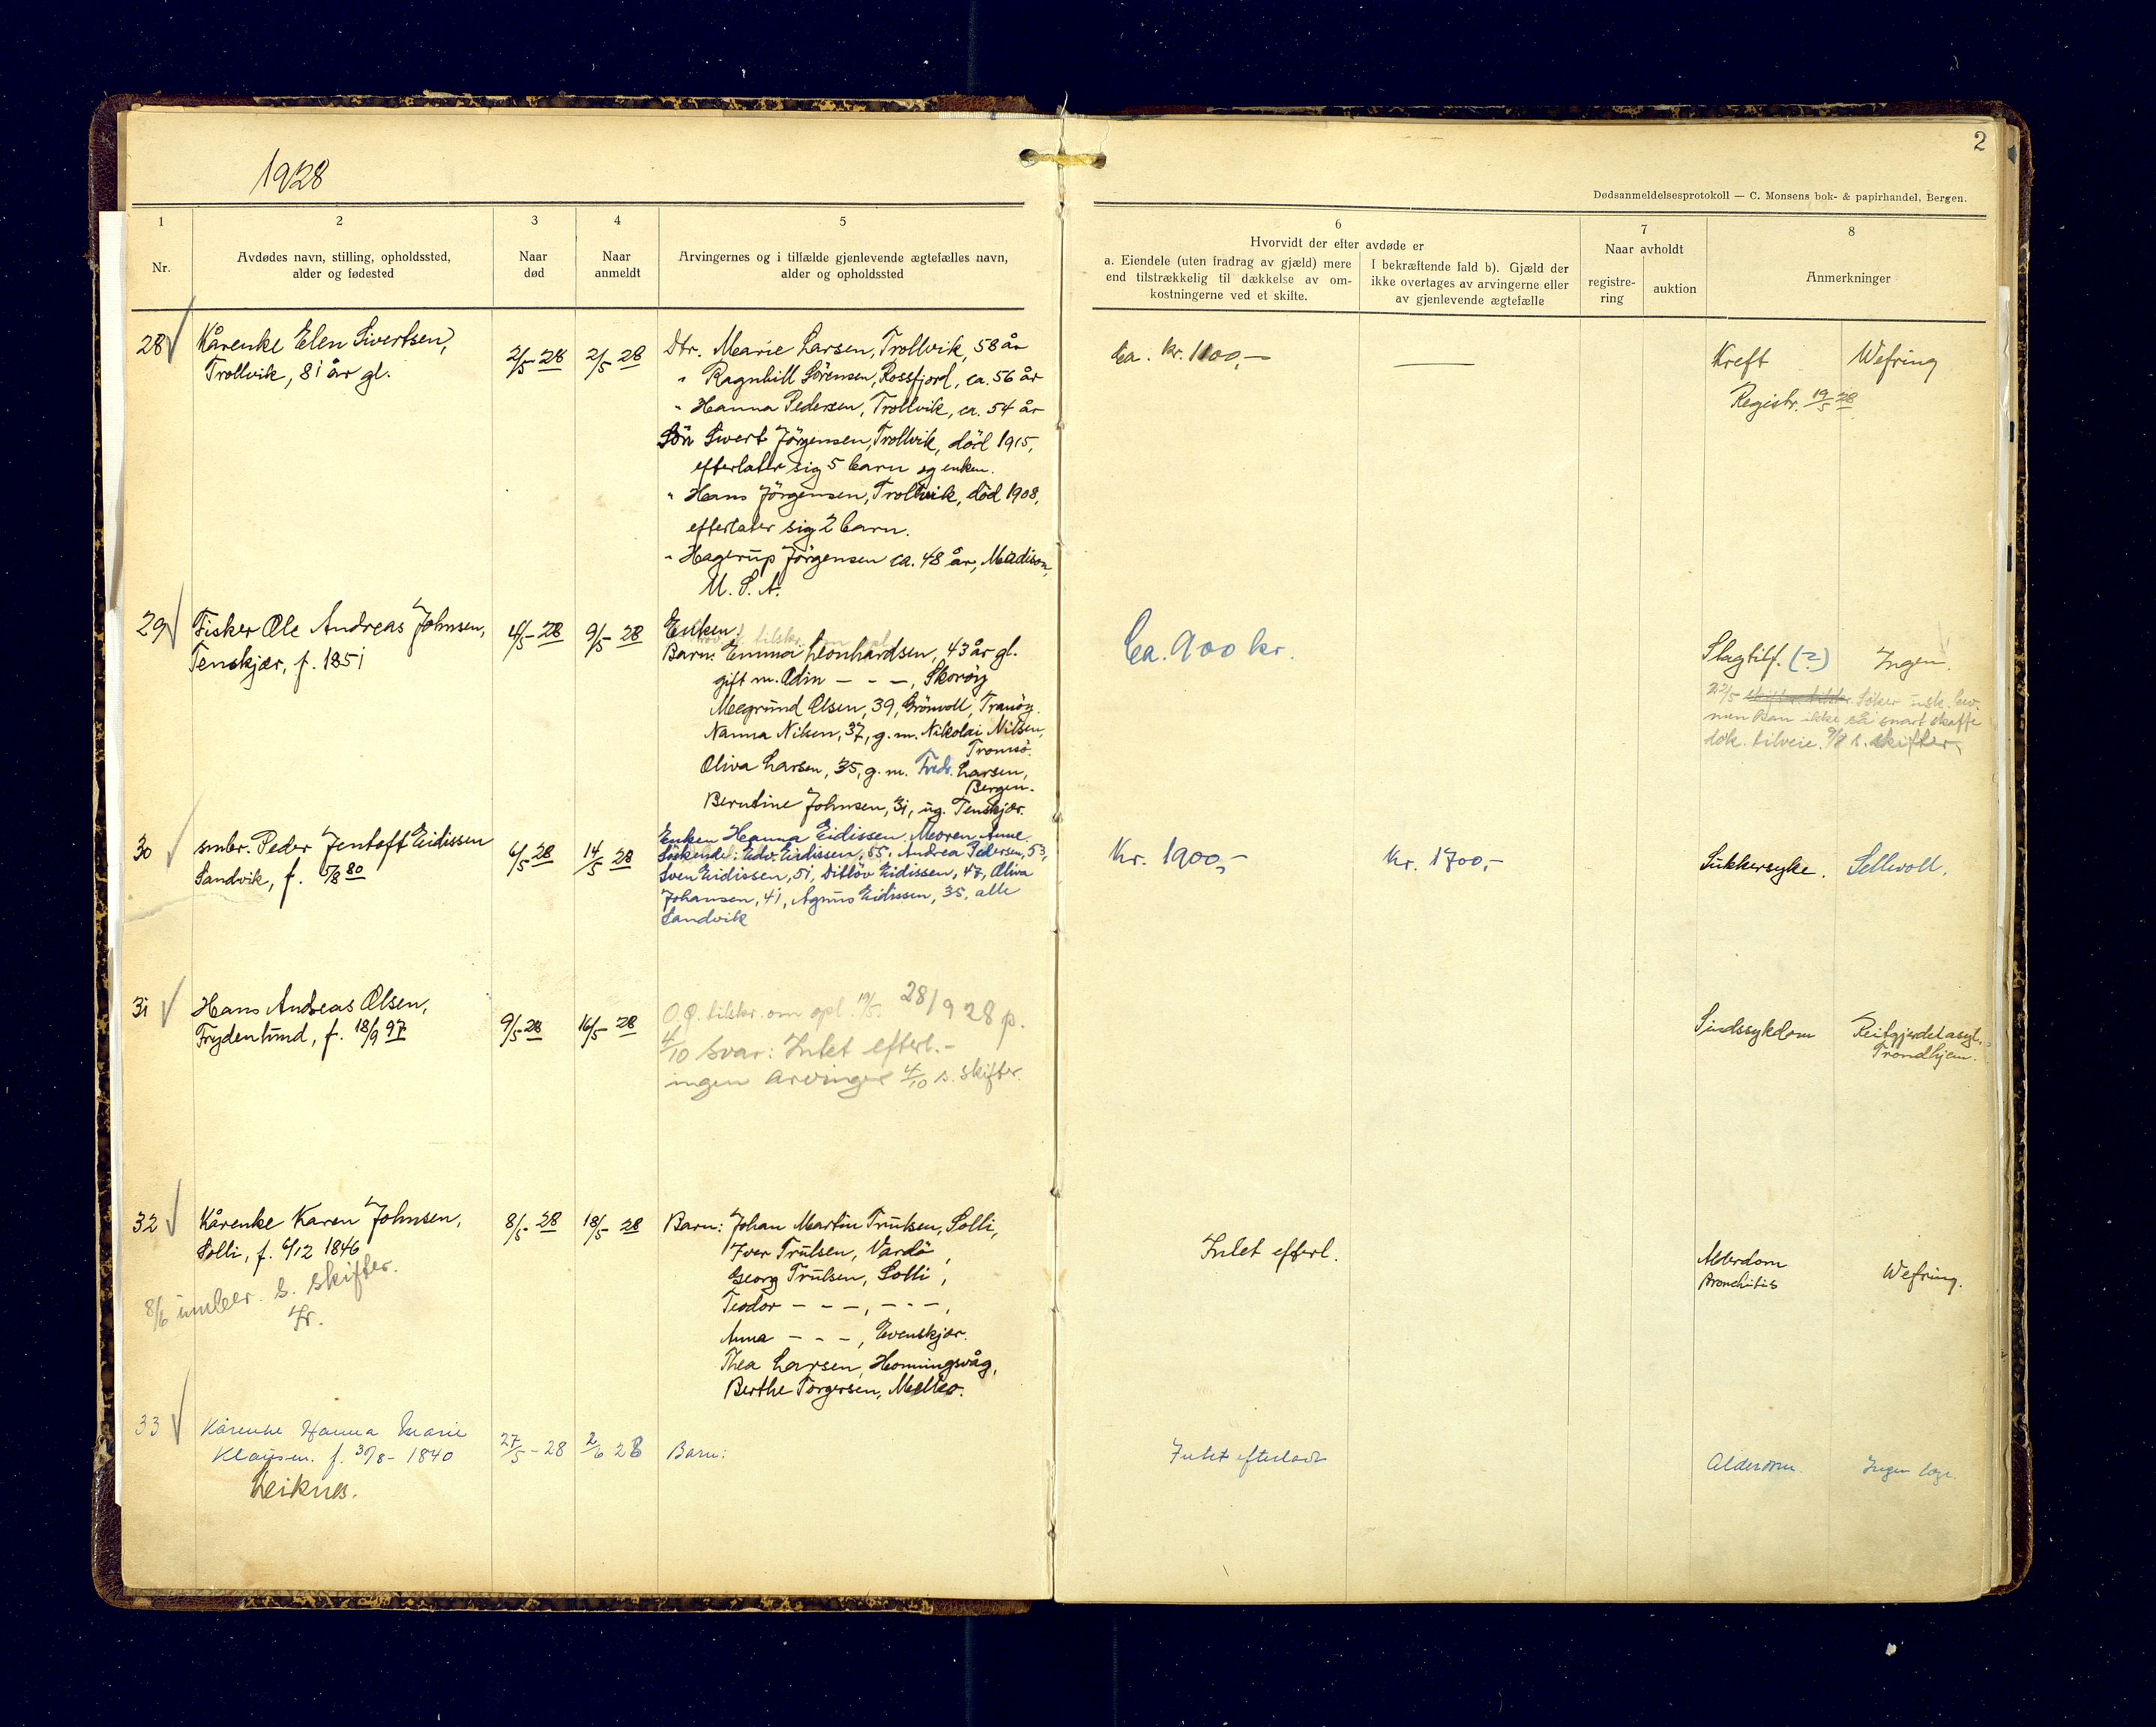 1928
2
Dødsanmeldelsesprotokoll — C. Monsens bok- & papirhandel, Bergen.
1
2
3
4
5
6
7
8
Nr.
Avdødes navn, stilling, opholdssted,
alder og fødested
Naar
død
Naar
anmeldt
Arvingernes og i tilfælde gjenlevende ægtefælles navn,
alder og opholdssted
Hvorvidt der efter avdøde er
a. Eiendele (uten fradrag av gjæld) mere
end tilstrækkelig til dækkelse av om-
kostningerne ved et skifte.
I bekræftende fald b). Gjæld der
ikke overtages av arvingerne eller
av gjenlevende ægtefælle
Naar avholdt
registre-
ring
auktion
Anmerkninger
28
Kårenke Elen Sivertsen,
Trollvik, 81 år gl.
2/5-28
2/5 28
Dtr. Marie Larsen, Trollvik, 58 år
" Ragnhill Sörensen, Rossfjord, ca. 56 år
" Hanna Pedersen, Trollvik, ca. 54 år
Sön Sivert Jörgensen, Trollvik, död 1915,
efterlater sig 5 barn og enken.
" Hans Jörgensen, Trollvik, död 1908,
efterlater sig 2 barn.
" Hagerup Jörgensen ca. 48 år, Madison,
U. S. A.
Ca. kr. 1100,-
—
Kreft
Wefring
Registr. 19/5 28
29
Fisker Ole Andreas Johnsen,
Tenskjær, f. 1851
4/5-28
9/5-28
Enken:
Barn: Emma Leonhardsen, 43 år gl.
gift m. Odin - - -, Skoröy
Olsen, 39, Grönvoll, Tranöy.
Nanna Nilsen, 37, g.m. Nikolai Nilsen,
Tromsö.
Oliva Larsen, 35, g. m. Fredr. Larsen,
Bergen.
Berntine Johnsen, 31, ug. Tenskjær.
Ca. 900 kr.
Slagtilf. (?)
Ingen.
22/5 Söker usk. bev.
men kan ikke så snart skaffe
dok. tilveie. 9/8 s. skifter
30
smbr. Peder Jentoft Eidissen
Sandvik, f. 5/8 80
6/5 28
14/5 28
Enken Hanna Eidissen. Moren Anne
Söskende: Edv. Eidissen, 55, Andrea Pedersen, 53,
Sven Eidissen, 51, Ditlöv Eidissen, 47, Oliva
Johansen, 41, Agnus Eidissen, 35, alle
Sandvik
Kr. 1900,-
Kr. 1700,-
Sukkersyke.
Sellevoll.
31
Hans Andreas Olsen,
Frydenlund, f. 18/9 97
9/5-28
16/5-28
O.Q. tilskr. om opl. 19/5. 28/9 28 p.
4/10 Svar: Intet efterl.-
ingen arvinger 4/10 s. skifter.
Sindssykdom
Reitgjerdet asyl,
Trondhjem.
32
Kårenke Karen Johnsen,
Solli, f. 6/12 1846
8/6 s. skifter.
8/5-28
18/5-28
Barn: Johan Martin Trulsen, Solli,
Iver Trulsen, Vardö,
Georg Trulsen, Solli,
Teodor - - -, - - -,
Anna - - -, Evenskjær.
Thea Larsen, Honningsvåg,
Berthe Torgersen,
Intet efterl.
Alderdom
Bronchitis
Wefring.
33
Kårenke Hanna Marie
Klaysen. f. 30/8-1840
Leiknes.
27/5-28
2/6 28
Barn:
Intet efterladt
Alderdom.
Ingen læge.